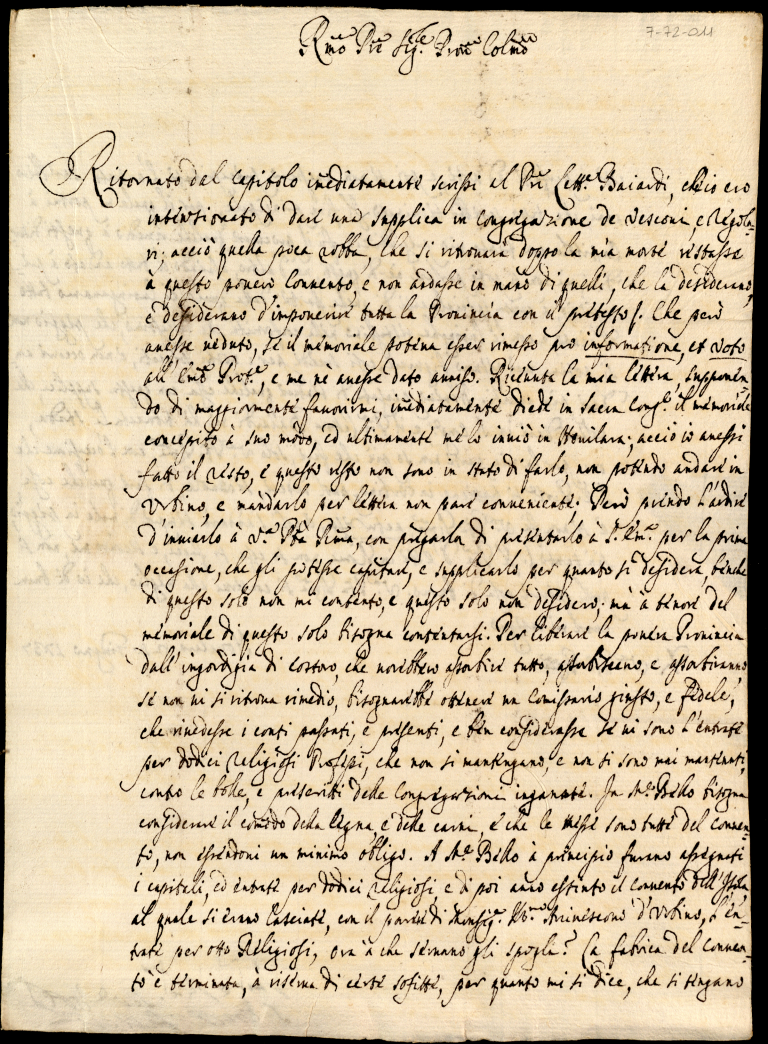 7-72-011
Rmo Pre Sigre Prone Colmo
Ritornato dal Capitolo imediatamente scrissi al Pre Lettre Baiardi, ch'io ero
intentionato di dare una supplica in Congregazione de Vesconi, e Regola-
ri; acciò quella poca robba, che si ritrovarà doppo la mia morte restasse
à questo povero Convento, e non andasse in mano di quelli, che la desiderano,
e desiderano d'impoverire tutta la Provincia con il pretesto f. Che però
avesse veduto, se il memoriale poteva esser rimesso pro informatione, et voto
all' Emo Protre, e me nè avesse dato aviso. Ricevuta la mia lettera, supponen-
do di maggiormente favorirmi, imediatamente diede in Sacra Conge il memoriale
concepito à suo modo, ed ultimamente me lo inviò in Novilara; acciò io avessi
fatto il resto, e questo resto non sono in stato di farlo, non potendo andare in
Urbino, e mandarlo per lettera non pare conveniente; Però prendo l'ardire
d'inviarlo à V.a Ptà Rma, con pregarla di presentarlo à S. Emza per la prima
occasione, che gli potesse capitare, e supplicarlo per quanto si desidera, benche
di questo solo non mi contento, e questo solo non desidero; mà à tenore del
memoriale di questo solo bisogna contentarsi. Per liberare la povera Provincia
dall' ingordigia di costoro, che vorebbero assorbire tutto, assorbiscono, e assorbiranno
se non vi si ritrova rimedio, bisognarebbe ottenere un Comissario giusto, e fedele,
che rivedesse i conti passati, e presenti, e bèn considerasse se vi sono l'entrate
per dodici Religiosi Professi, che non si mantengano, e non si sono mai mantenuti,
contro le bolle, e prescritti delle Congregazioni ingannate. In Mte Bello bisogna
considerare il comodo della legna, e delle carni, e che le messe sono tutte del Conven-
to, non essendoni un minimo obligo. A Mte Bello à principio furono assegnati
i capitali, ed entrate per dodici Religiosi e di poi anno estinto il convento dell'Isola
al quale si erano lasciate, con il parere di Monsigr Arcivescovo d'Urbino, l'en-
trate per otto Religiosi, ora à che servano gli spogli? La fabrica del Conven-
to è terminata, à riserva di certe sofitte, per quanto mi si dice, che si tengano